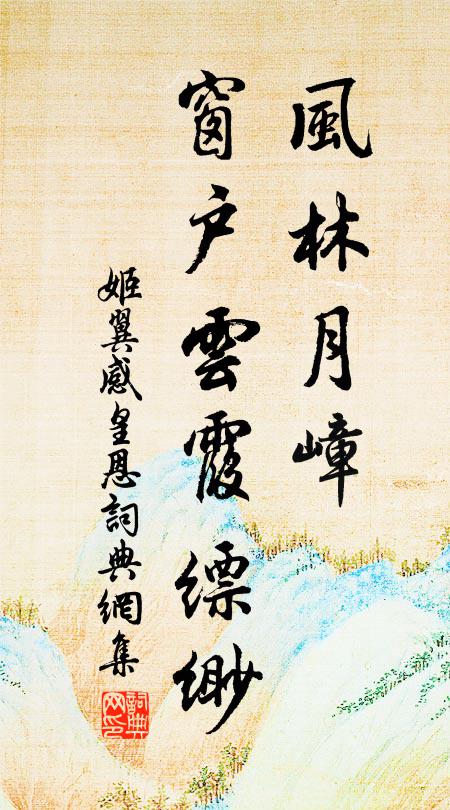 風林月嶂
窗户雲霞縹緲
姬翼感皇恩詞典網集
詞典
网印